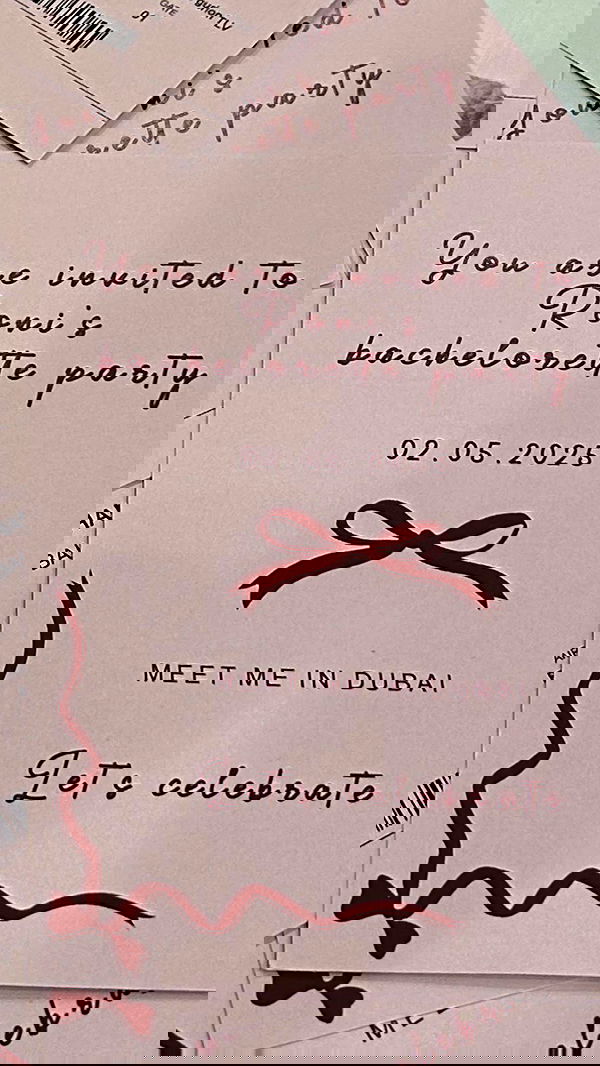 party
You are invited to
Roni's
bachelorette party
02.05.2025
MEET ME IN DUBAI
Let's celebrate